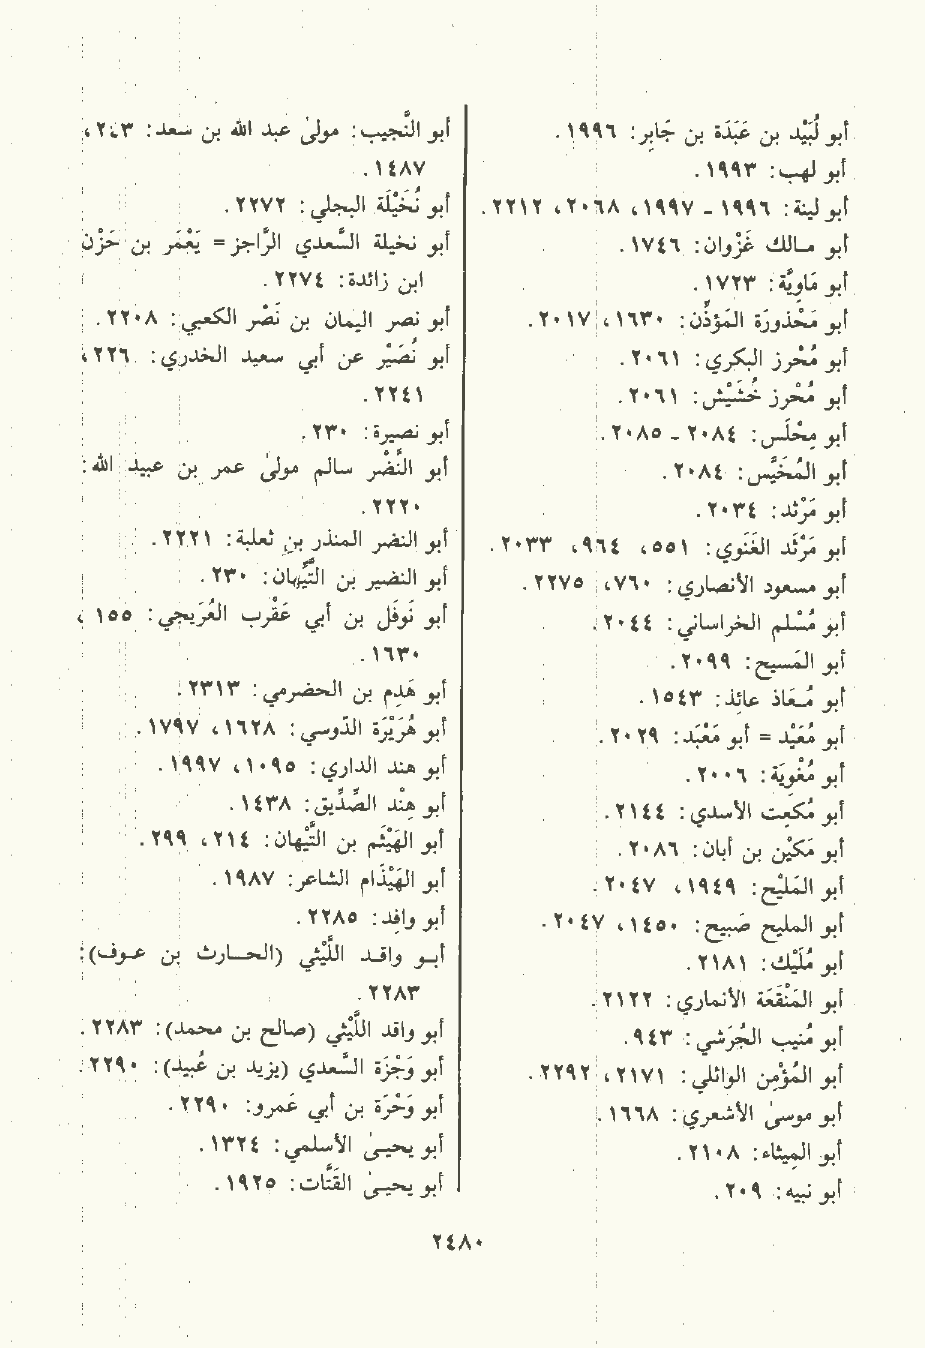 أبو لُبَيْد بن عَبَدَة بن جَابِر: ١٩٩٦.
أبو لهب: ١٩٩٣.
أبو لينة: ١٩٩٦ - ١٩٩٧، ٢٠٦٨، ٢٢١٢.
أبو مالك غَزْوان: ١٧٤٦.
أبو مَاوِيَّة: ١٧٢٣.
أبو مَحْذورَة المَؤذِّن: ١٦٣٠، ٢٠١٧.
أبو مُحْرز البكري: ٢٠٦١.
أبو مُحْرز خُشَيْش: ٢٠٦١.
أبو مِحْلَس: ٢٠٨٤ - ٢٠٨٥.
أبو المُخَيَّس: ٢٠٨٤.
أبو مَرْثد: ٢٠٣٤.
أبو مَرْثَد الغَنَوي: ٥٥١، ٩٦٤، ٢٠٣٣.
أبو مسعود الأنصاري: ٧٦٠، ٢٢٧٥.
أبو مُسْلم الخراساني: ٢٠٤٤.
أبو المَسيح: ٢٠٩٩.
أبو مُعَاذ عائِذ: ١٥٤٣.
أبو مُعَيْد = أبو مَعْبَد: ٢٠٢٩.
أبو مُغْوِيَة: ٢٠٠٦.
أبو مُكعِت الأسدي: ٢١٤٤.
أبو مَكيْن بن أبان: ٢٠٨٦.
أبو المَليْح: ١٩٤٩، ٢٠٤٧.
أبو المليح صَبيح: ١٤٥٠، ٢٠٤٧.
أبو مُلَيْك: ٢١٨١.
أبو المَنْقَعَة الأنماري: ٢١٢٢.
أبو مُنيب الجُرَشي: ٩٤٣.
أبو المُؤْمِن الوائلي: ٢١٧١، ٢٢٩٢.
أبو موسىٰ الأشعري: ١٦٦٨.
أبو المِيثاء: ٢١٠٨.
أبو نبيه: ٢٠٩.
أبو النَّجيب: مولىٰ عبد الله بن سَعد: ٢٤٣، ١٤٨٧.
أبو نُخَيْلَة البجلي: ٢٢٧٢.
أبو نخيلة السَّعدي الرَّاجز = يَعْمَر بن حَزْن
ابن زائدة: ٢٢٧٤.
أبو نصر اليمان بن نَصْر الكعبي: ٢٢٠٨.
أبو نُصَيْر عن أبي سعيد الخدري: ٢٢٦،
٢٢٤١.
أبو نصيرة: ٢٣٠.
أبو النَّضْر سالم مولىٰ عمر بن عبيد الله:
٢٢٢٠.
أبو النضر المنذر بن ثعلبة: ٢٢٢١.
أبو النضير بن التَّيِّهان: ٢٣٠.
أبو نَوفَل بن أبي عَقْرب العُرَيجي: ١٥٥،
١٦٣٠.
أبو هَدِم بن الحضرمي: ٢٣١٣.
أبو هُرَيْرَة الدّوسي: ١٦٢٨، ١٧٩٧.
أبو هند الداري: ١٠٩٥، ١٩٩٧.
أبو هِنْد الصِّدِّيق: ١٤٣٨.
أبو الهَيْثَم بن التَّيْهان: ٢١٤، ٢٩٩.
أبو الهَيْذَام الشاعر: ١٩٨٧.
أبو وافِد: ٢٢٨٥.
أبو واقد اللَّيْثي (الحارث بن عوف):
٢٢٨٣.
أبو واقد اللَّيْثي (صالح بن محمد): ٢٢٨٣.
أبو وَجْزَة السَّعدي (يزيد بن عُبيد): ٢٢٩٠.
أبو وَحْرَة بن أبي عَمرو: ٢٢٩٠.
أبو يحيىٰ الأسلمي: ١٣٢٤.
أبو يحيىٰ القَتَّات: ١٩٢٥.
٢٤٨٠